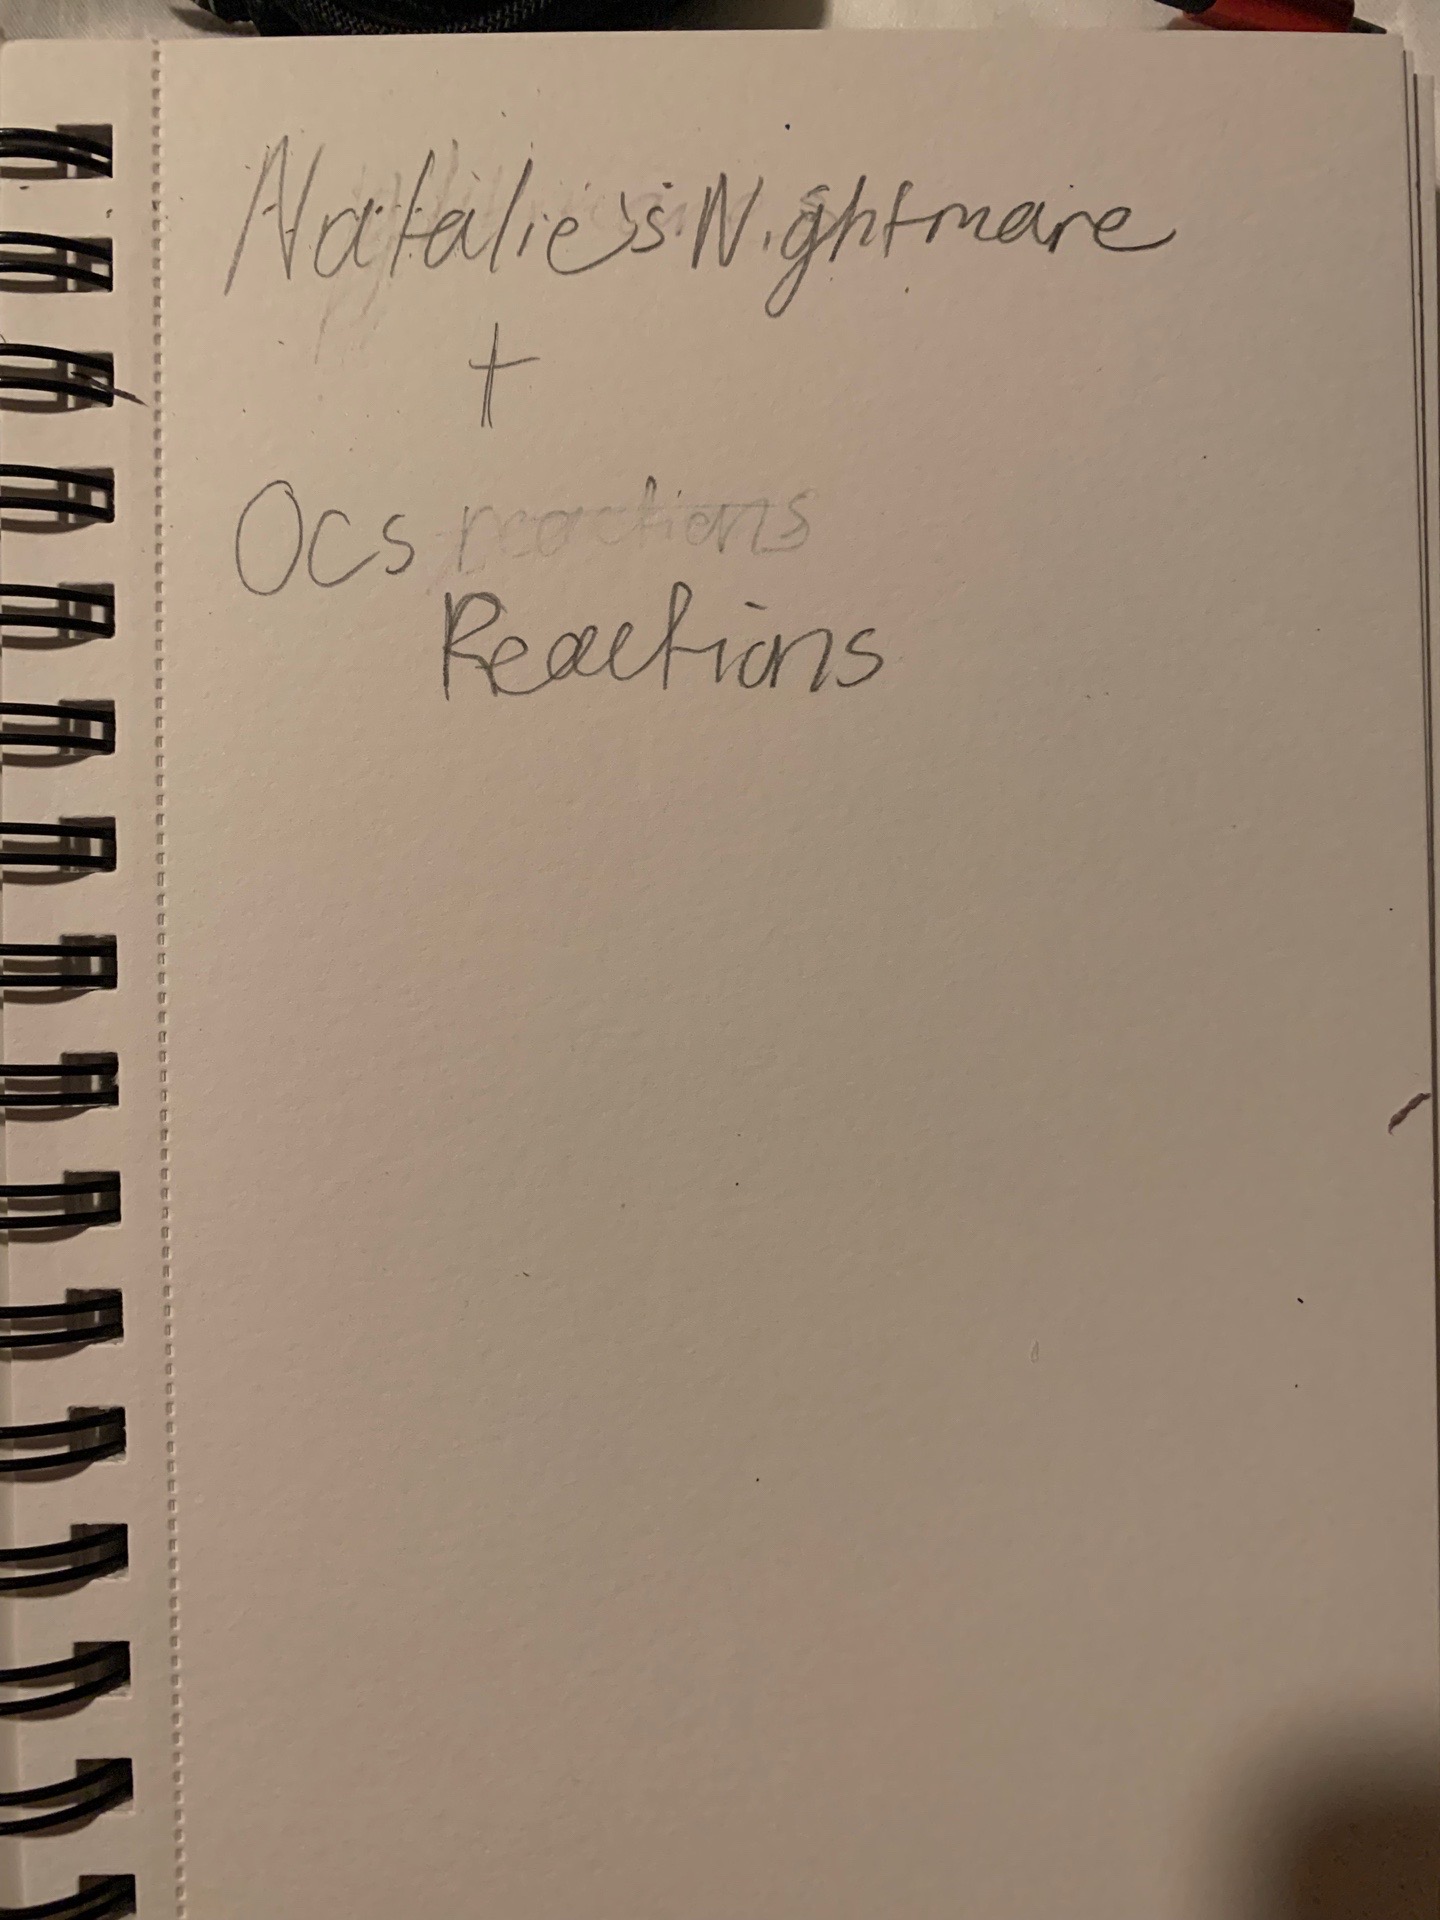 Natalie's Nightmare
+
Ocs reactions
Reactions